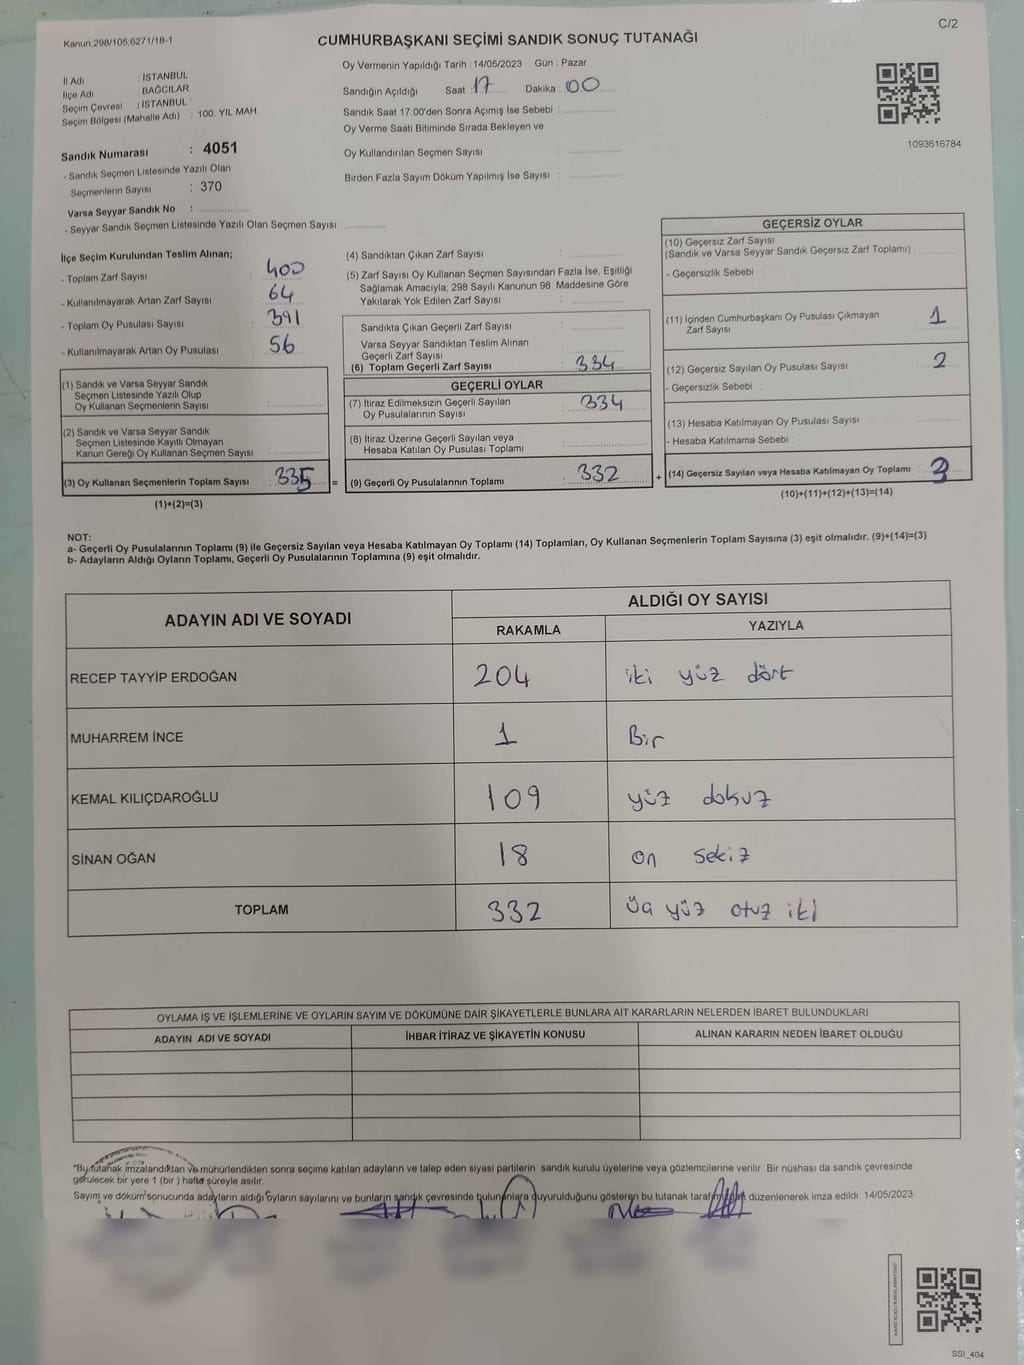 C/2
Kanun:298/105;6271/18-1
CUMHURBAŞKANI SEÇİMİ SANDIK SONUÇ TUTANAĞI
İl Adı : İSTANBUL
İlçe Adı : BAĞCILAR
Seçim Çevresi : İSTANBUL
Seçim Bölgesi (Mahalle Adı) : 100. YIL MAH.
Oy Vermenin Yapıldığı Tarih : 14/05/2023 Gün : Pazar
Sandığın Açıldığı Saat 17 Dakika : 00
Sandık Saat 17:00'den Sonra Açımış İse Sebebi :
Oy Verme Saati Bitiminde Sırada Bekleyen ve
Oy Kullandırılan Seçmen Sayısı :
Birden Fazla Sayım Döküm Yapılmış İse Sayısı :
1093616784
Sandık Numarası : 4051
- Sandık Seçmen Listesinde Yazılı Olan
Seçmenlerin Sayısı : 370
Varsa Seyyar Sandık No :
- Seyyar Sandık Seçmen Listesinde Yazılı Olan Seçmen Sayısı:
İlçe Seçim Kurulundan Teslim Alınan;
- Toplam Zarf Sayısı : 400
- Kullanılmayarak Artan Zarf Sayısı : 64
- Toplam Oy Pusulası Sayısı : 391
- Kullanılmayarak Artan Oy Pusulası : 56
(1) Sandık ve Varsa Seyyar Sandık
Seçmen Listesinde Yazılı Olup
Oy Kullanan Seçmenlerin Sayısı :
(2) Sandık ve Varsa Seyyar Sandık
Seçmen Listesinde Kayıtlı Olmayan
Kanun Gereği Oy Kullanan Seçmen Sayısı :
(3) Oy Kullanan Seçmenlerin Toplam Sayısı : 335 =
(1)+(2)=(3)
(4) Sandıktan Çıkan Zarf Sayısı :
(5) Zarf Sayısı Oy Kullanan Seçmen Sayısından Fazla İse, Eşitliği
Sağlamak Amacıyla; 298 Sayılı Kanunun 98. Maddesine Göre
Yakılarak Yok Edilen Zarf Sayısı :
Sandıkta Çıkan Geçerli Zarf Sayısı :
Varsa Seyyar Sandıktan Teslim Alınan
Geçerli Zarf Sayısı :
(6) Toplam Geçerli Zarf Sayısı : 334
GEÇERLİ OYLAR
(7) İtiraz Edilmeksizin Geçerli Sayılan
Oy Pusulalarının Sayısı : 334
(8) İtiraz Üzerine Geçerli Sayılan veya
Hesaba Katılan Oy Pusulası Toplamı :
(9) Geçerli Oy Pusulalarının Toplamı : 332 +
GEÇERSİZ OYLAR
(10) Geçersiz Zarf Sayısı
(Sandık ve Varsa Seyyar Sandık Geçersiz Zarf Toplamı) :
- Geçersizlik Sebebi :
(11) İçinden Cumhurbaşkanı Oy Pusulası Çıkmayan
Zarf Sayısı : 1
(12) Geçersiz Sayılan Oy Pusulası Sayısı : 2
- Geçersizlik Sebebi :
(13) Hesaba Katılmayan Oy Pusulası Sayısı :
- Hesaba Katılmama Sebebi :
(14) Geçersiz Sayılan veya Hesaba Katılmayan Oy Toplamı : 3
(10)+(11)+(12)+(13)=(14)
NOT:
a- Geçerli Oy Pusulalarının Toplamı (9) ile Geçersiz Sayılan veya Hesaba Katılmayan Oy Toplamı (14) Toplamları, Oy Kullanan Seçmenlerin Toplam Sayısına (3) eşit olmalıdır. (9)+(14)=(3)
b- Adayların Aldığı Oyların Toplamı, Geçerli Oy Pusulalarının Toplamına (9) eşit olmalıdır.
ADAYIN ADI VE SOYADI
ALDIĞI OY SAYISI
RAKAMLA YAZIYLA
RECEP TAYYİP ERDOĞAN 204 iki yüz dört
MUHARREM İNCE 1 Bir
KEMAL KILIÇDAROĞLU 109 yüz dokuz
SİNAN OĞAN 18 on sekiz
TOPLAM 332 üç yüz otuz iki
OYLAMA İŞ VE İŞLEMLERİNE VE OYLARIN SAYIM VE DÖKÜMÜNE DAİR ŞİKAYETLERLE BUNLARA AİT KARARLARIN NELERDEN İBARET BULUNDUKLARI
ADAYIN ADI VE SOYADI İHBAR İTİRAZ VE ŞİKAYETİN KONUSU ALINAN KARARIN NEDEN İBARET OLDUĞU
*Bu tutanak imzalandıktan ve mühürlendikten sonra seçime katılan adayların ve talep eden siyasi partilerin sandık kurulu üyelerine veya gözlemcilerine verilir. Bir nüshası da sandık çevresinde
görülecek bir yere 1 (bir ) hafta süreyle asılır.
Sayım ve döküm sonucunda adayların aldığı oyların sayılarını ve bunların sandık çevresinde bulunanlara duyurulduğunu gösteren bu tutanak düzenlenerek imza edildi. 14/05/2023
SSI_404